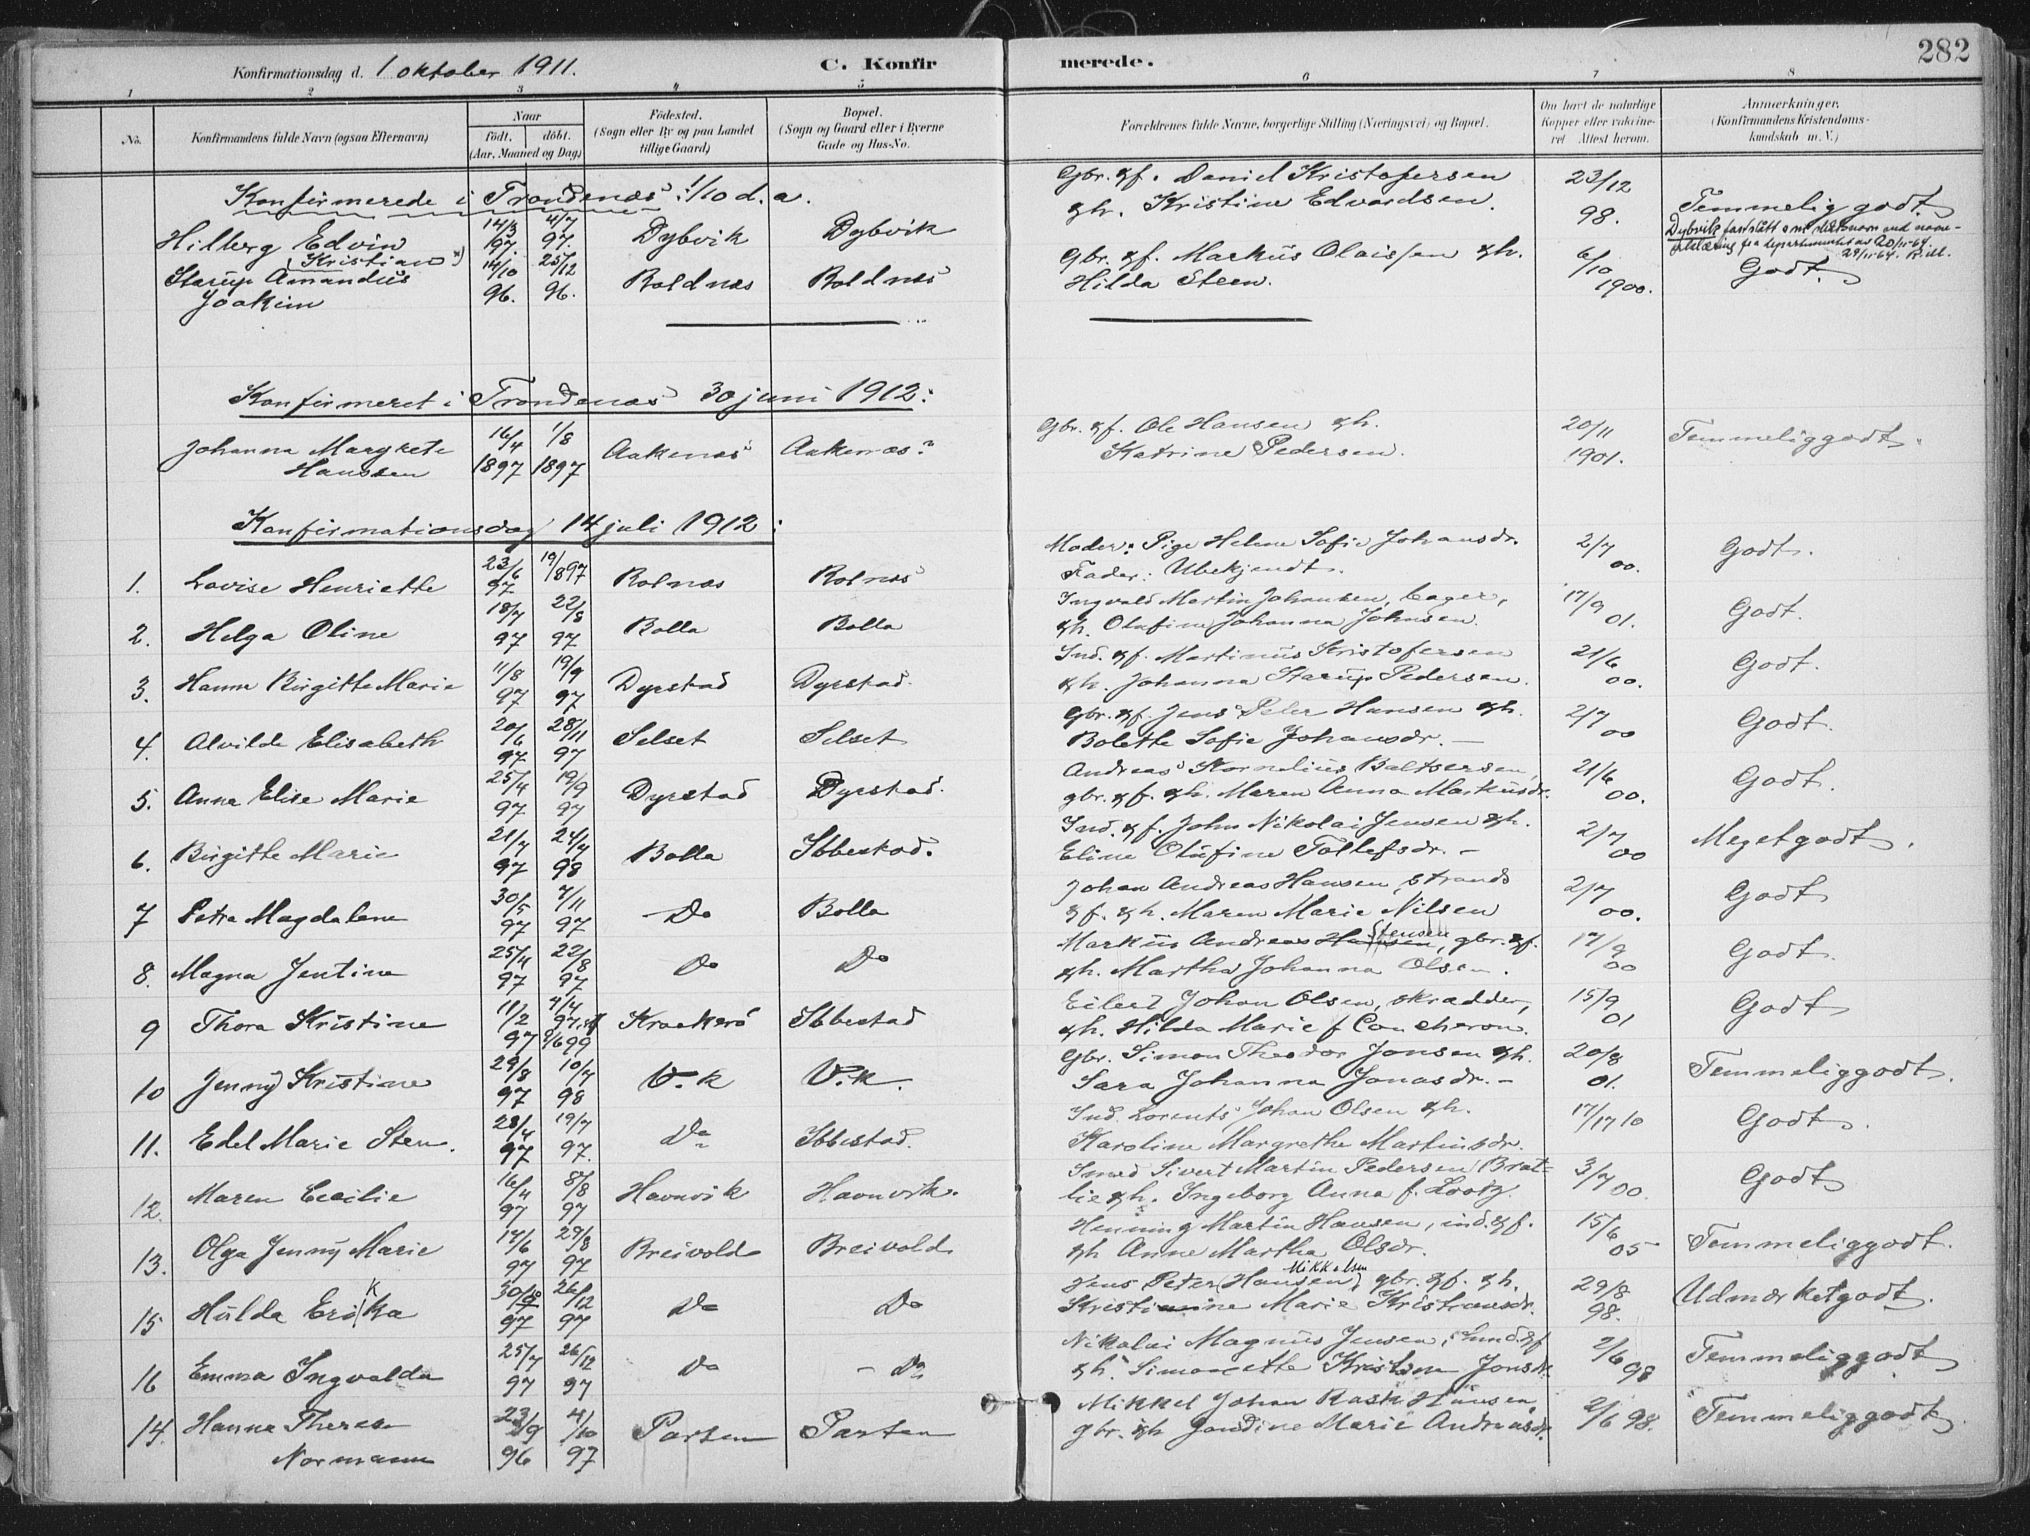 Konfirmationsdag d. 1 oktober 1911. C. Konfirmerede. 282
1 2 3 4 5 6 7 8
No. Konfirmandens fulde Navn (ogsaa Efternavn) Naar født. døbt. (Aar, Maaned og Dag) Fødested. (Sogn eller By og paa Landet tillige Gaard) Bopæl. (Sogn og Gaard eller i Byerne Gade og Hus-No. Forældrenes fulde Navne, borgerlige Stilling (Næringsvei) og Bopæl. Om havt de naturlige Kopper eller vaccineret Attest herom. Anmærkninger. (Konfirmandens Kristendomskundskab m. V.)
Konfirmerede i Trondenæs 1/10 d. a.
Hilberg Edvin Kristian x) 14/3 97. 4/7 97. Dybvik Dybvik Gbr. gf. Daniel Kristofersen gh. Kristine Edvardsen. 23/12 98. Temmelig godt.
Dybvik fastslått som slektsnavn ved navneerklæring fra departementet av 20/11-64. 24/11-64.
Starup Amandus Joakim 14/10 96. 25/12 96. Roldnæs Roldnæs Gbr. gf. Markus Olaissen gh. Hilda Steen. 6/10 1900. Godt.
Konfirmeret i Trondenæs 30 juni 1912:
Johanna Margrete Hanssen 16/4 1897 1/8 1897 Aakenæs Aakenæs Gbr. gf. Ole Hansen gh. Katrine Pedersen. 20/11 1901. Temmeliggodt.
Konfirmationsdag 14 juli 1912:
1. Lovise Henriette 23/6 97 19/8 97 Rolnæs Rolnæs Moder: Pige Helene Sofie Johansdr. Fader: Ubekjendt. 2/7 00. Godt.
2. Helga Oline 18/7 97 22/8 97 Rolla Rolla Ingvald Martin Johansen, bager, gh. Olufine Johanna Johnsen. 17/9 01. Godt.
3. Hanna Birgitte Marie 11/8 97 19/9 97 Dyrstad Dyrstad. Ind. gf. Martinus Kristofersen gh. Johanna Starup Pedersen. 21/6 00. Godt.
4. Alvilde Elisabeth 20/6 97 28/11 97 Selset Selset Gbr. gf. Jens Peter Hansen gh. Bolette Sofie Johansdr. 2/7 00 Godt.
5. Anna Elise Marie 25/4 97 19/9 97 Dyrstad Dyrstad. Andreas Kornelius Baltsersen, gbr. gf. gh. Maren Anna Markusdr. 21/6 00. Godt.
6. Birgitte Marie 21/7 97 24/4 98 Rolla Ibbestad. Ind. gf. John Nikolai Jensen gh. Eline Olufine Tollefsdr. 2/7 00 Megetgodt.
7 Petra Magdalena 30/5 97 7/11 97 Do Rolla Johan Andreas Hansen, strands gf. gh. Maren Marie Nilsen 2/7 00. Godt
8. Magna Jentine 25/4 97 22/8 97 Do Do Markus Andreas Hansen Jensen, gbr. gf. gh. Martha Johanna Olsen. 17/9 00 Godt.
9 Thora Kristine 11/2 97 4/4 97, 99 Kraakerø Ibbestad Eilert Johan Olsen, skrædder, gh. Hilda Marie f Concheron. 15/9 01 Godt
10 Jenny Kristine 29/8 97 10/4 98 V.k V.k. Gbr. Simon Theodor Jonsen gh. Sara Johanna Jonasdr. 20/8 01. Temmeliggodt.
11. Edel Marie Sten. 28/4 97 19/7 97. Do Ibbestad. Ind. Lorents Johan Olsen gh. Karoline Margrethe Martinsdr. 17/17 10 Godt.
12. Maren Cecilie 16/4 97 8/8 97 Havnvik Havnvik. Smed Sivert Martin Pedersen Bratlie gh. Ingeborg Anna f. Lootz. 3/7 00. Godt
13. Olga Jenny Marie 17/6 97 29/8 97 Breivold Breivold Henning Martin Hansen, ind. gf. gh Anne Martha Olsdr. 15/6 05 Temmeliggodt.
15 Hulda Erika 97 26/12 97 Do Do Jens Peter (Hansen) Mikkelsen gbr. gf. gh. Kristine Marie Kristiansdr. 29/8 98. Udmærketgodt.
16 Emma Ingvalda 25/7 97 26/12 97 Do Do Nikolai Magnus Jensen, gf gh. Simonette Jonsdr. 2/6 98 Temmeliggodt
14. Hanna Therese Normann 23/9 96 4/10 97 Parsen Parsen Mikkel Johan Rask Hansen gbr. gh Jondine Marie Andreasdr. 2/6 98. Temmeliggodt.